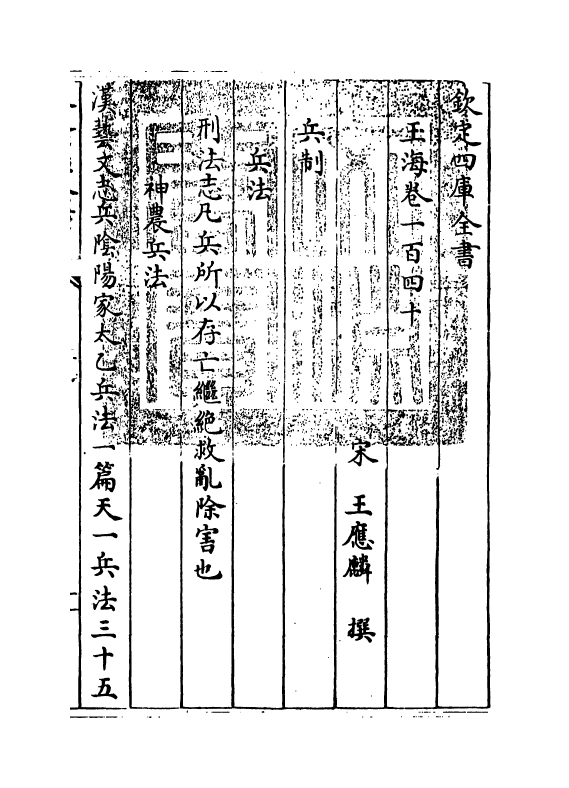 欽定四庫全書
玉海卷一百四十
宋　王應麟　撰
兵制
兵法
刑法志凡兵所以存亡繼絶救亂除害也
神農兵法
漢藝文志兵隂陽家太乙兵法一篇天一兵法三十五